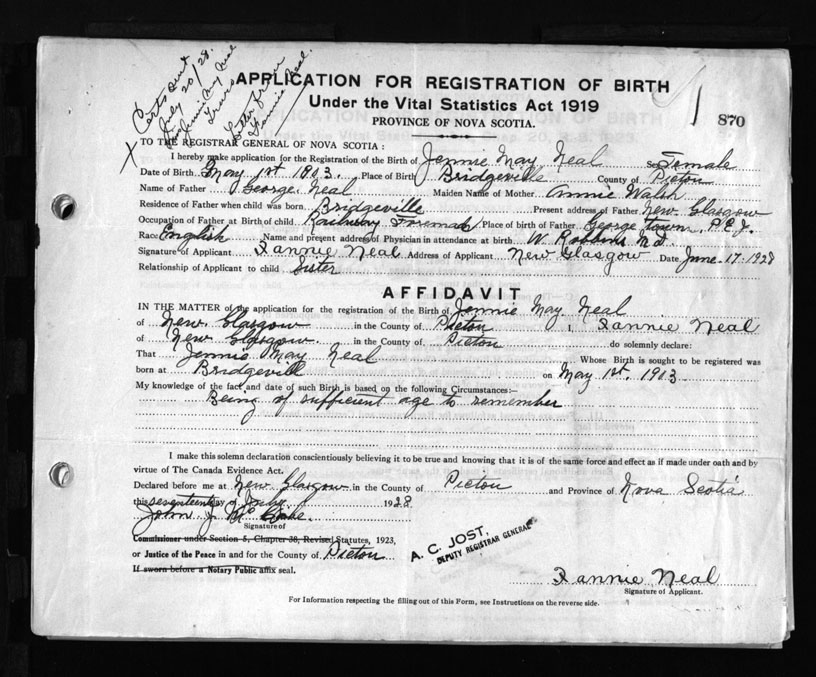 Certs sent
July 20/28.
Jennie May Neal
Fannie Neal.
APPLICATION FOR REGISTRATION OF BIRTH
Under the Vital Statistics Act 1919
PROVINCE OF NOVA SCOTIA
870
X TO THE REGISTRAR GENERAL OF NOVA SCOTIA:
I hereby make application for the Registration of the Birth of Jennie May Neal Sex Female
Date of Birth May 1st 1903. Place of Birth Bridgeville County of Picton
Name of Father George Neal Maiden Name of Mother Annie Walsh
Residence of Father when child was born Bridgeville Present address of Father New Glasgow
Occupation of Father at Birth of child Railway Foreman Place of birth of Father George town, P.E.I.
Race English Name and present address of Physician in attendance at birth W. Robbins M.D.
Signature of Applicant Fannie Neal Address of Applicant New Glasgow Date June 17. 1928
Relationship of Applicant to child Sister
AFFIDAVIT
IN THE MATTER of the application for the registration of the Birth of Jennie May Neal
of New Glasgow in the County of Picton I, Fannie Neal
of New Glasgow. in the County of Picton do solemnly declare:
That Jennie May Neal Whose Birth is sought to be registered was
born at Bridgevill on May 1st. 1903.
My knowledge of the fact and date of such Birth is based on the following Circumstances:—
Being of sufficient age to remember
I make this solemn declaration conscientiously believing it to be true and knowing that it is of the same force and effect as if made under oath and by
virtue of The Canada Evidence Act.
Declared before me at New Glasgow in the County of Picton and Province of Nova Scotia
this seventeenth day of July 1928
John J. McCabe.
Signature of
Commissioner under Section 5, Chapter 38, Revised Statutes, 1923,
or Justice of the Peace in and for the County of Picton
If sworn before a Notary Public affix seal.
A. C. JOST,
DEPUTY REGISTRAR GENERAL
Fannie Neal
Signature of Applicant.
For Information respecting the filling out of this Form, see Instructions on the reverse side.